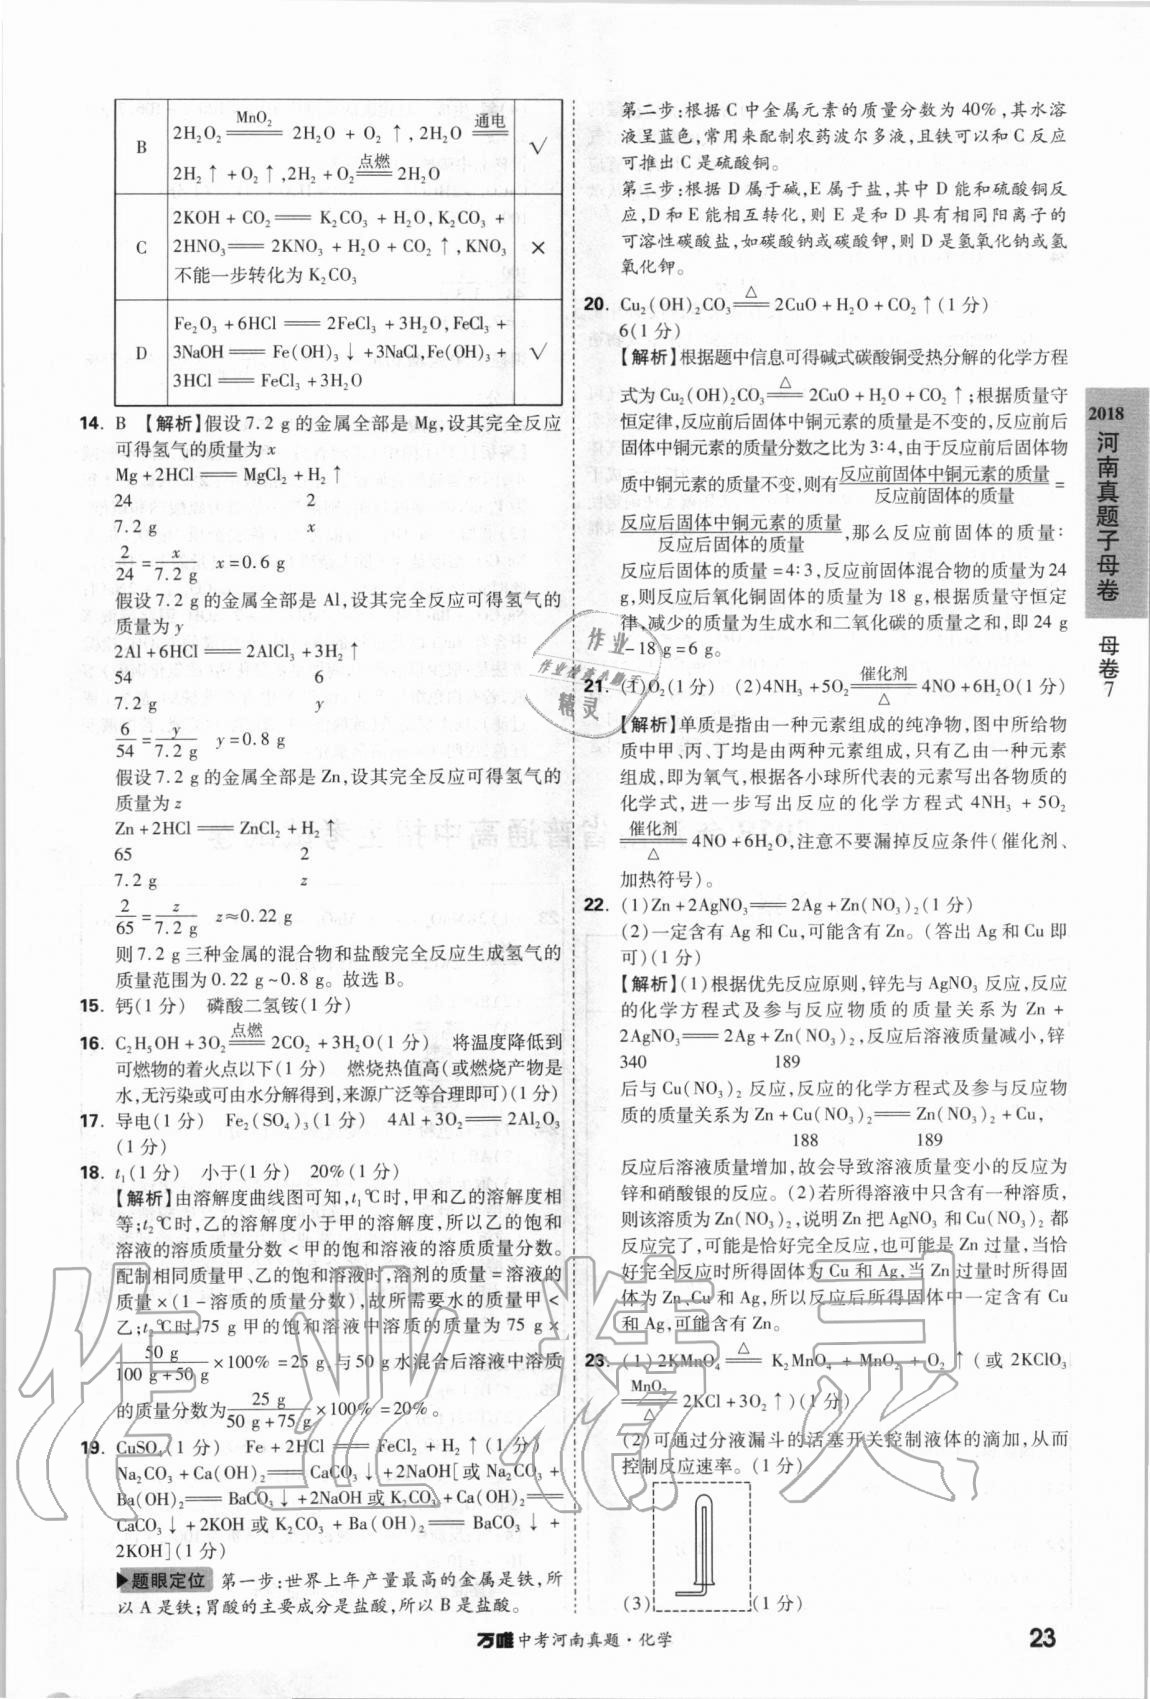 B
2H₂O₂ =MnO₂= 2H₂O + O₂↑, 2H₂O =通电=
2H₂↑+O₂↑, 2H₂+O₂ =点燃= 2H₂O
√
C
2KOH + CO₂ == K₂CO₃ + H₂O, K₂CO₃ +
2HNO₃ == 2KNO₃ + H₂O + CO₂↑, KNO₃
不能一步转化为 K₂CO₃
×
D
Fe₂O₃ +6HCl == 2FeCl₃ +3H₂O, FeCl₃ +
3NaOH == Fe(OH)₃↓+3NaCl, Fe(OH)₃ +
3HCl == FeCl₃ +3H₂O
√
14. B 【解析】假设7.2 g的金属全部是Mg,设其完全反应
可得氢气的质量为x
Mg+2HCl == MgCl₂+H₂↑
24 2
7.2 g x
2/24 = x/7.2 g x=0.6 g
假设7.2 g的金属全部是Al,设其完全反应可得氢气的
质量为y
2Al+6HCl == 2AlCl₃+3H₂↑
54 6
7.2 g y
6/54 = y/7.2 g y=0.8 g
假设7.2 g的金属全部是Zn,设其完全反应可得氢气的
质量为z
Zn+2HCl == ZnCl₂+H₂↑
65 2
7.2 g z
2/65 = z/7.2 g z≈0.22 g
则7.2 g三种金属的混合物和盐酸完全反应生成氢气的
质量范围为0.22 g~0.8 g。故选B。
15. 钙(1分) 磷酸二氢铵(1分)
16. C₂H₅OH+3O₂ =点燃= 2CO₂+3H₂O(1分) 将温度降低到
可燃物的着火点以下(1分) 燃烧热值高(或燃烧产物是
水,无污染或可由水分解得到,来源广泛等合理即可)(1分)
17. 导电(1分) Fe₂(SO₄)₃(1分) 4Al+3O₂ == 2Al₂O₃
(1分)
18. t₁(1分) 小于(1分) 20%(1分)
【解析】由溶解度曲线图可知,t₁℃时,甲和乙的溶解度相
等;t₂℃时,乙的溶解度小于甲的溶解度,所以乙的饱和
溶液的溶质质量分数<甲的饱和溶液的溶质质量分数。
配制相同质量甲、乙的饱和溶液时,溶剂的质量=溶液的
质量×(1-溶质的质量分数),故所需要水的质量甲<
乙;t₂℃时,75 g甲的饱和溶液中溶质的质量为75 g×
50 g/(100 g+50 g) ×100%=25 g,与50 g水混合后溶液中溶质
的质量分数为 25 g/(50 g+75 g) ×100%=20%。
19. CuSO₄(1分) Fe+2HCl == FeCl₂+H₂↑(1分)
Na₂CO₃+Ca(OH)₂ == CaCO₃↓+2NaOH[或Na₂CO₃+
Ba(OH)₂ == BaCO₃↓+2NaOH或K₂CO₃+Ca(OH)₂ ==
CaCO₃↓+2KOH或K₂CO₃+Ba(OH)₂ == BaCO₃↓+
2KOH](1分)
▶题眼定位 第一步:世界上年产量最高的金属是铁,所
以A是铁;胃酸的主要成分是盐酸,所以B是盐酸。
第二步:根据C中金属元素的质量分数为40%,其水溶
液呈蓝色,常用来配制农药波尔多液,且铁可以和C反应
可推出C是硫酸铜。
第三步:根据D属于碱,E属于盐,其中D能和硫酸铜反
应,D和E能相互转化,则E是和D具有相同阳离子的
可溶性碳酸盐,如碳酸钠或碳酸钾,则D是氢氧化钠或氢
氧化钾。
20. Cu₂(OH)₂CO₃ =△= 2CuO+H₂O+CO₂↑(1分)
6(1分)
【解析】根据题中信息可得碱式碳酸铜受热分解的化学方程
式为Cu₂(OH)₂CO₃ =△= 2CuO+H₂O+CO₂↑;根据质量守
恒定律,反应前后固体中铜元素的质量是不变的,反应前后
固体中铜元素的质量分数之比为3:4,由于反应前后固体物
质中铜元素的质量不变,则有 反应前固体中铜元素的质量/反应前固体的质量 =
反应后固体中铜元素的质量/反应后固体的质量,那么反应前固体的质量:
反应后固体的质量=4:3,反应前固体混合物的质量为24
g,则反应后氧化铜固体的质量为18 g,根据质量守恒定
律,减少的质量为生成水和二氧化碳的质量之和,即24 g
-18 g=6 g。
21. (1)O₂(1分) (2)4NH₃+5O₂ =催化剂/△= 4NO+6H₂O(1分)
【解析】单质是指由一种元素组成的纯净物,图中所给物
质中甲、丙、丁均是由两种元素组成,只有乙由一种元素
组成,即为氧气,根据各小球所代表的元素写出各物质的
化学式,进一步写出反应的化学方程式4NH₃+5O₂
=催化剂/△= 4NO+6H₂O,注意不要漏掉反应条件(催化剂、
加热符号)。
22. (1)Zn+2AgNO₃ == 2Ag+Zn(NO₃)₂(1分)
(2)一定含有Ag和Cu,可能含有Zn。(答出Ag和Cu即
可)(1分)
【解析】(1)根据优先反应原则,锌先与AgNO₃反应,反应
的化学方程式及参与反应物质的质量关系为Zn+
2AgNO₃ == 2Ag+Zn(NO₃)₂,反应后溶液质量减小,锌
340 189
后与Cu(NO₃)₂反应,反应的化学方程式及参与反应物
质的质量关系为Zn+Cu(NO₃)₂ == Zn(NO₃)₂+Cu,
188 189
反应后溶液质量增加,故会导致溶液质量变小的反应为
锌和硝酸银的反应。(2)若所得溶液中只含有一种溶质,
则该溶质为Zn(NO₃)₂,说明Zn把AgNO₃和Cu(NO₃)₂都
反应完了,可能是恰好完全反应,也可能是Zn过量,当恰
好完全反应时所得固体为Cu和Ag,当Zn过量时所得固
体为Zn、Cu和Ag,所以反应后所得固体中一定含有Cu
和Ag,可能含有Zn。
23. (1)2KMnO₄ =△= K₂MnO₄+MnO₂+O₂↑(或2KClO₃
=MnO₂/△= 2KCl+3O₂↑)(1分)
(2)可通过分液漏斗的活塞开关控制液体的滴加,从而
控制反应速率。(1分)
(3) (1分)
2018
河南真题子母卷
母卷7
万唯中考河南真题·化学
23
作业
精灵
作业精灵